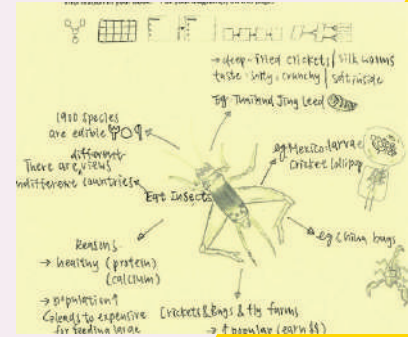 → deep-fried crickets / silk worms
taste: salty, crunchy / soft inside
Eg Thailand Jing Leed
1900 species
are edible
different
There are views
in different countries
Eat Insects
eg Mexico: larvae
Cricket lollipop
eg China bugs
Reasons
→ healthy (protein)
(calcium)
→ population↑
leads to expensive
for feeding large
Crickets & Bugs & fly farms
→ ↑ popular (earn $$)